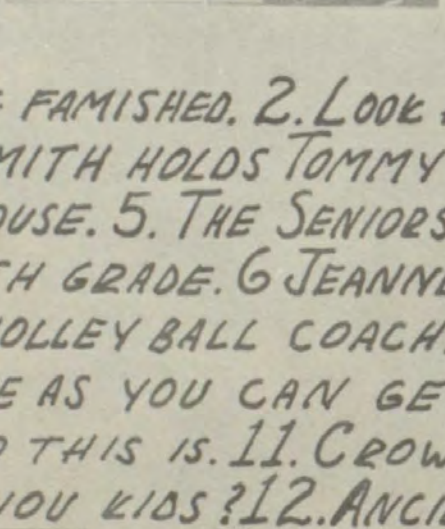 E FAMISHED. 2. LOOK
MITH HOLDS TOMMY
OUSE. 5. THE SENIORS
TH GRADE. 6 JEANNE
OLLEY BALL COACH.
E AS YOU CAN GE
D THIS IS. 11. CROW
YOU KIDS? 12. ANCH